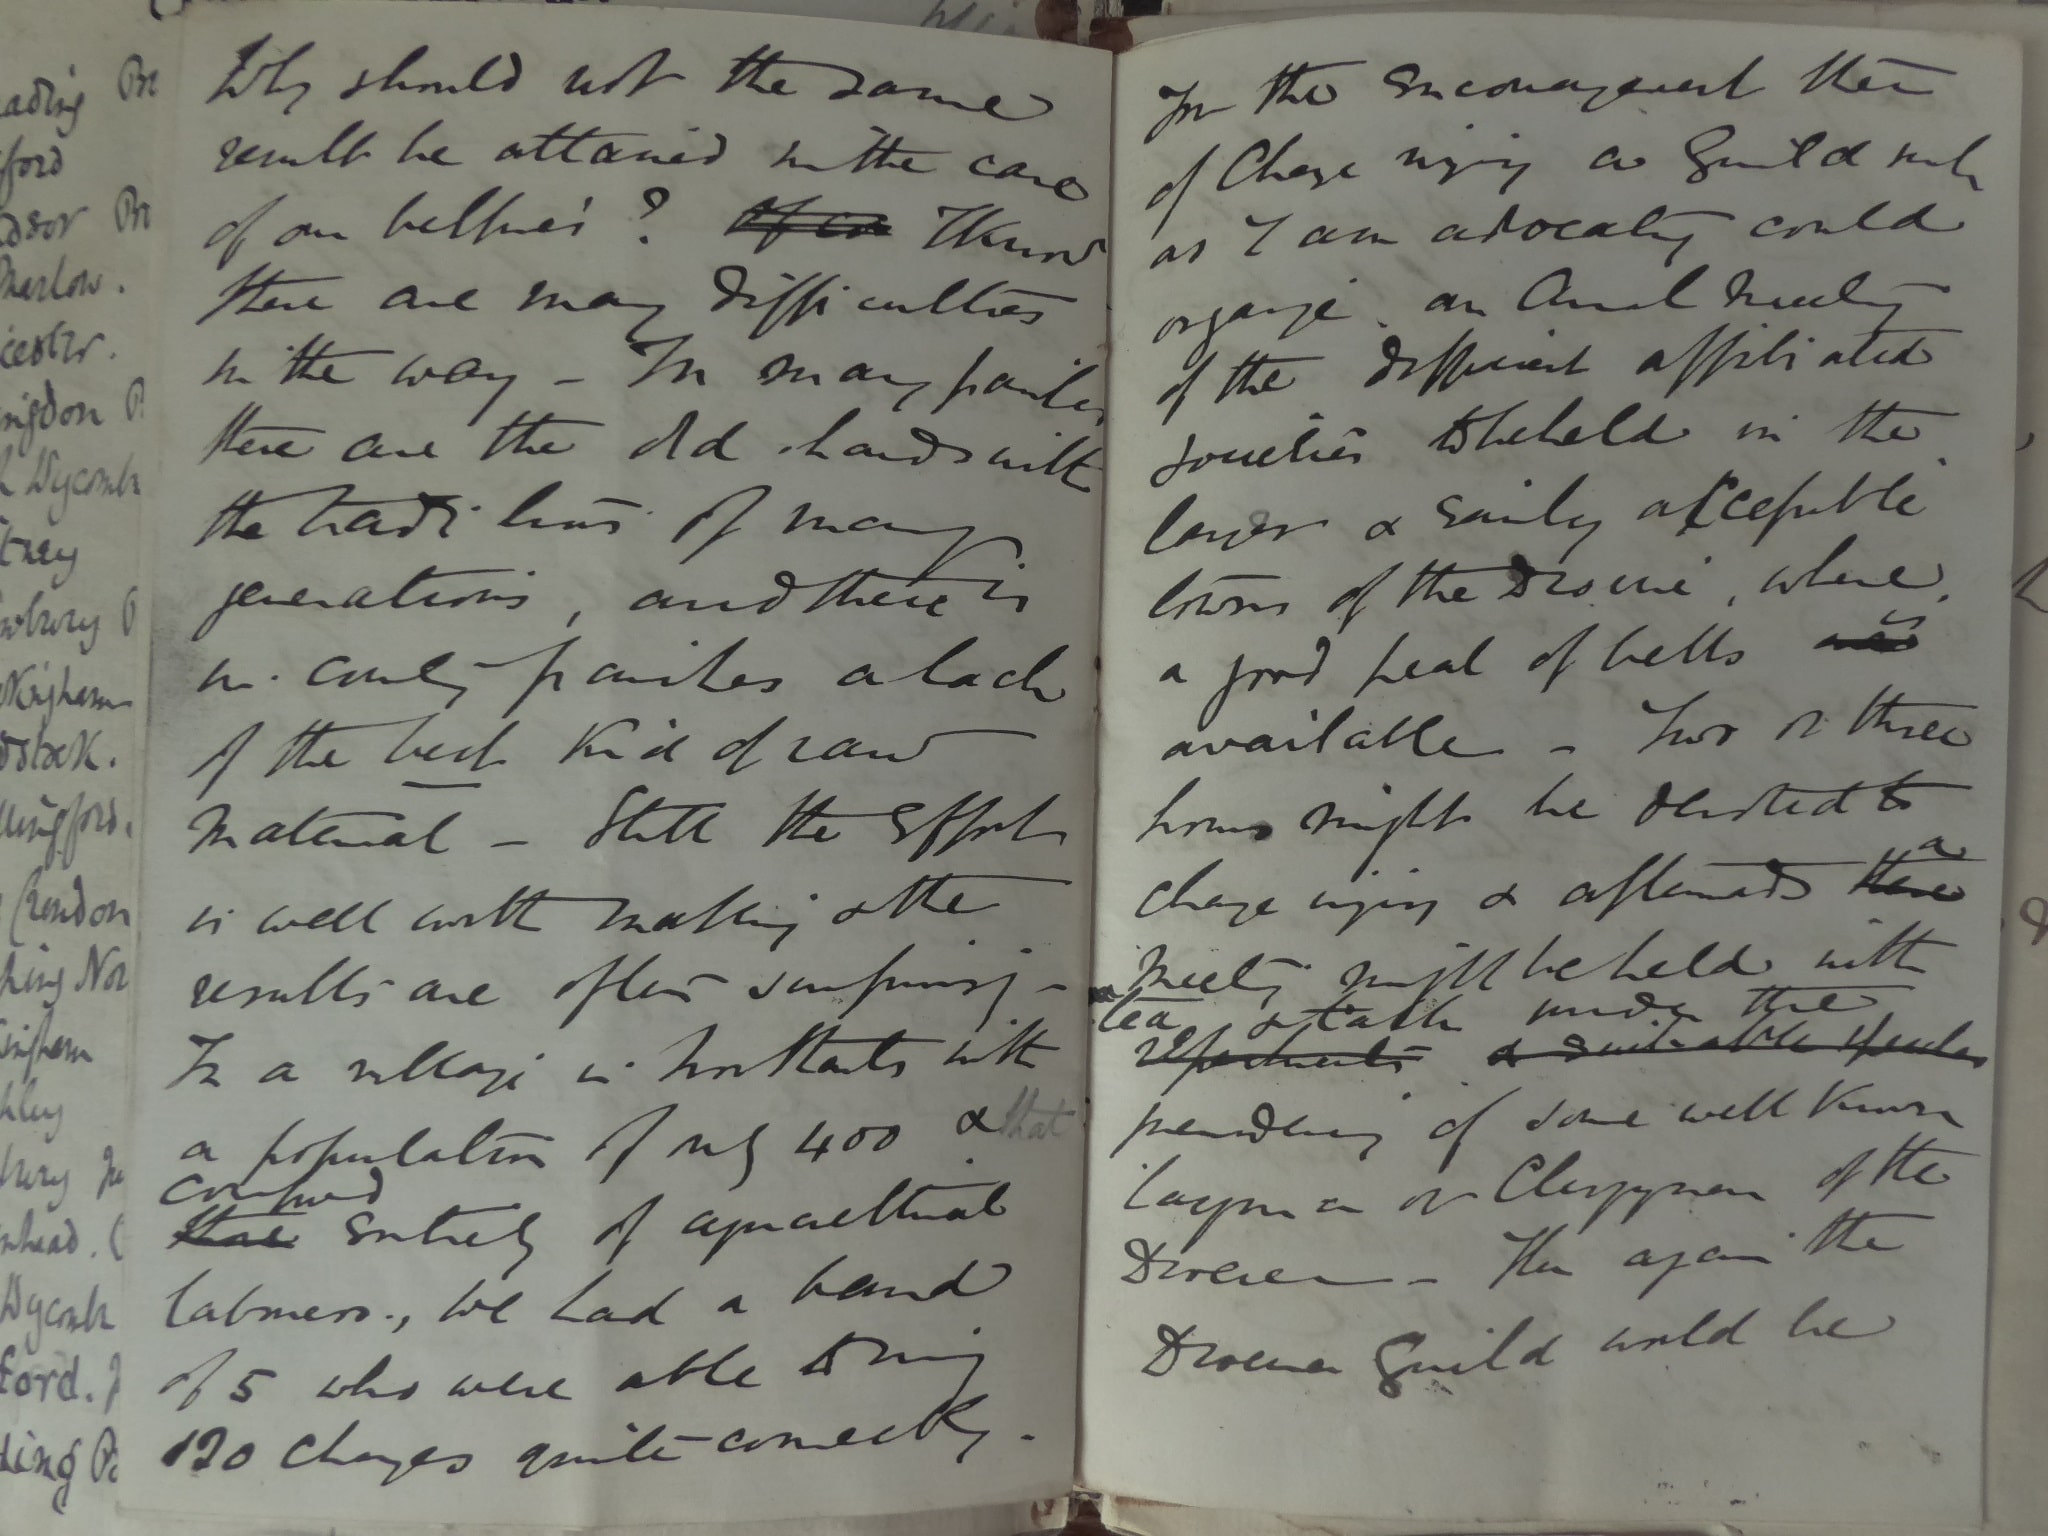 Why should not the same
result be attained in the case
of our belfries? Of co I know
there are many difficulties
in the way - In many parishes
there are the old hands with
the traditions of many
generations, and there is
in county parishes a lack
of the best kind of raw
material - Still the effort
is well worth making & the
results are often surprising -
In a village in with
a population of only 400 & that
composed
entirely of agricultural
labourers., we had a band
of 5 who were able to ring
120 changes quite correctly.
In the encouragement then
of Change ringing a Guild such
as I am advocating could
organize an Annual Meeting
of the different affiliated
societies to be held in the
larger & easily accessible
towns of the Diocese, where
is
a good peal of bells was
available - Two or three
hours might be devoted to
a
change ringing & afterwards there
meeting might be held with
tea & talk under the
refreshments & suitable speeches
presidency of some well known
layman or Clergyman of the
Diocese - Then again the
Diocesan Guild would be
eading Pr
ford
dsor Pr
Marlow.
cester.
ingdon P
h Wycomb
tney
wbury P
okingham
odstock.
llingford.
Crendon
ping Nor
kingham
hley
bury
nhead. C
Wycomb
ford.
ding Pa